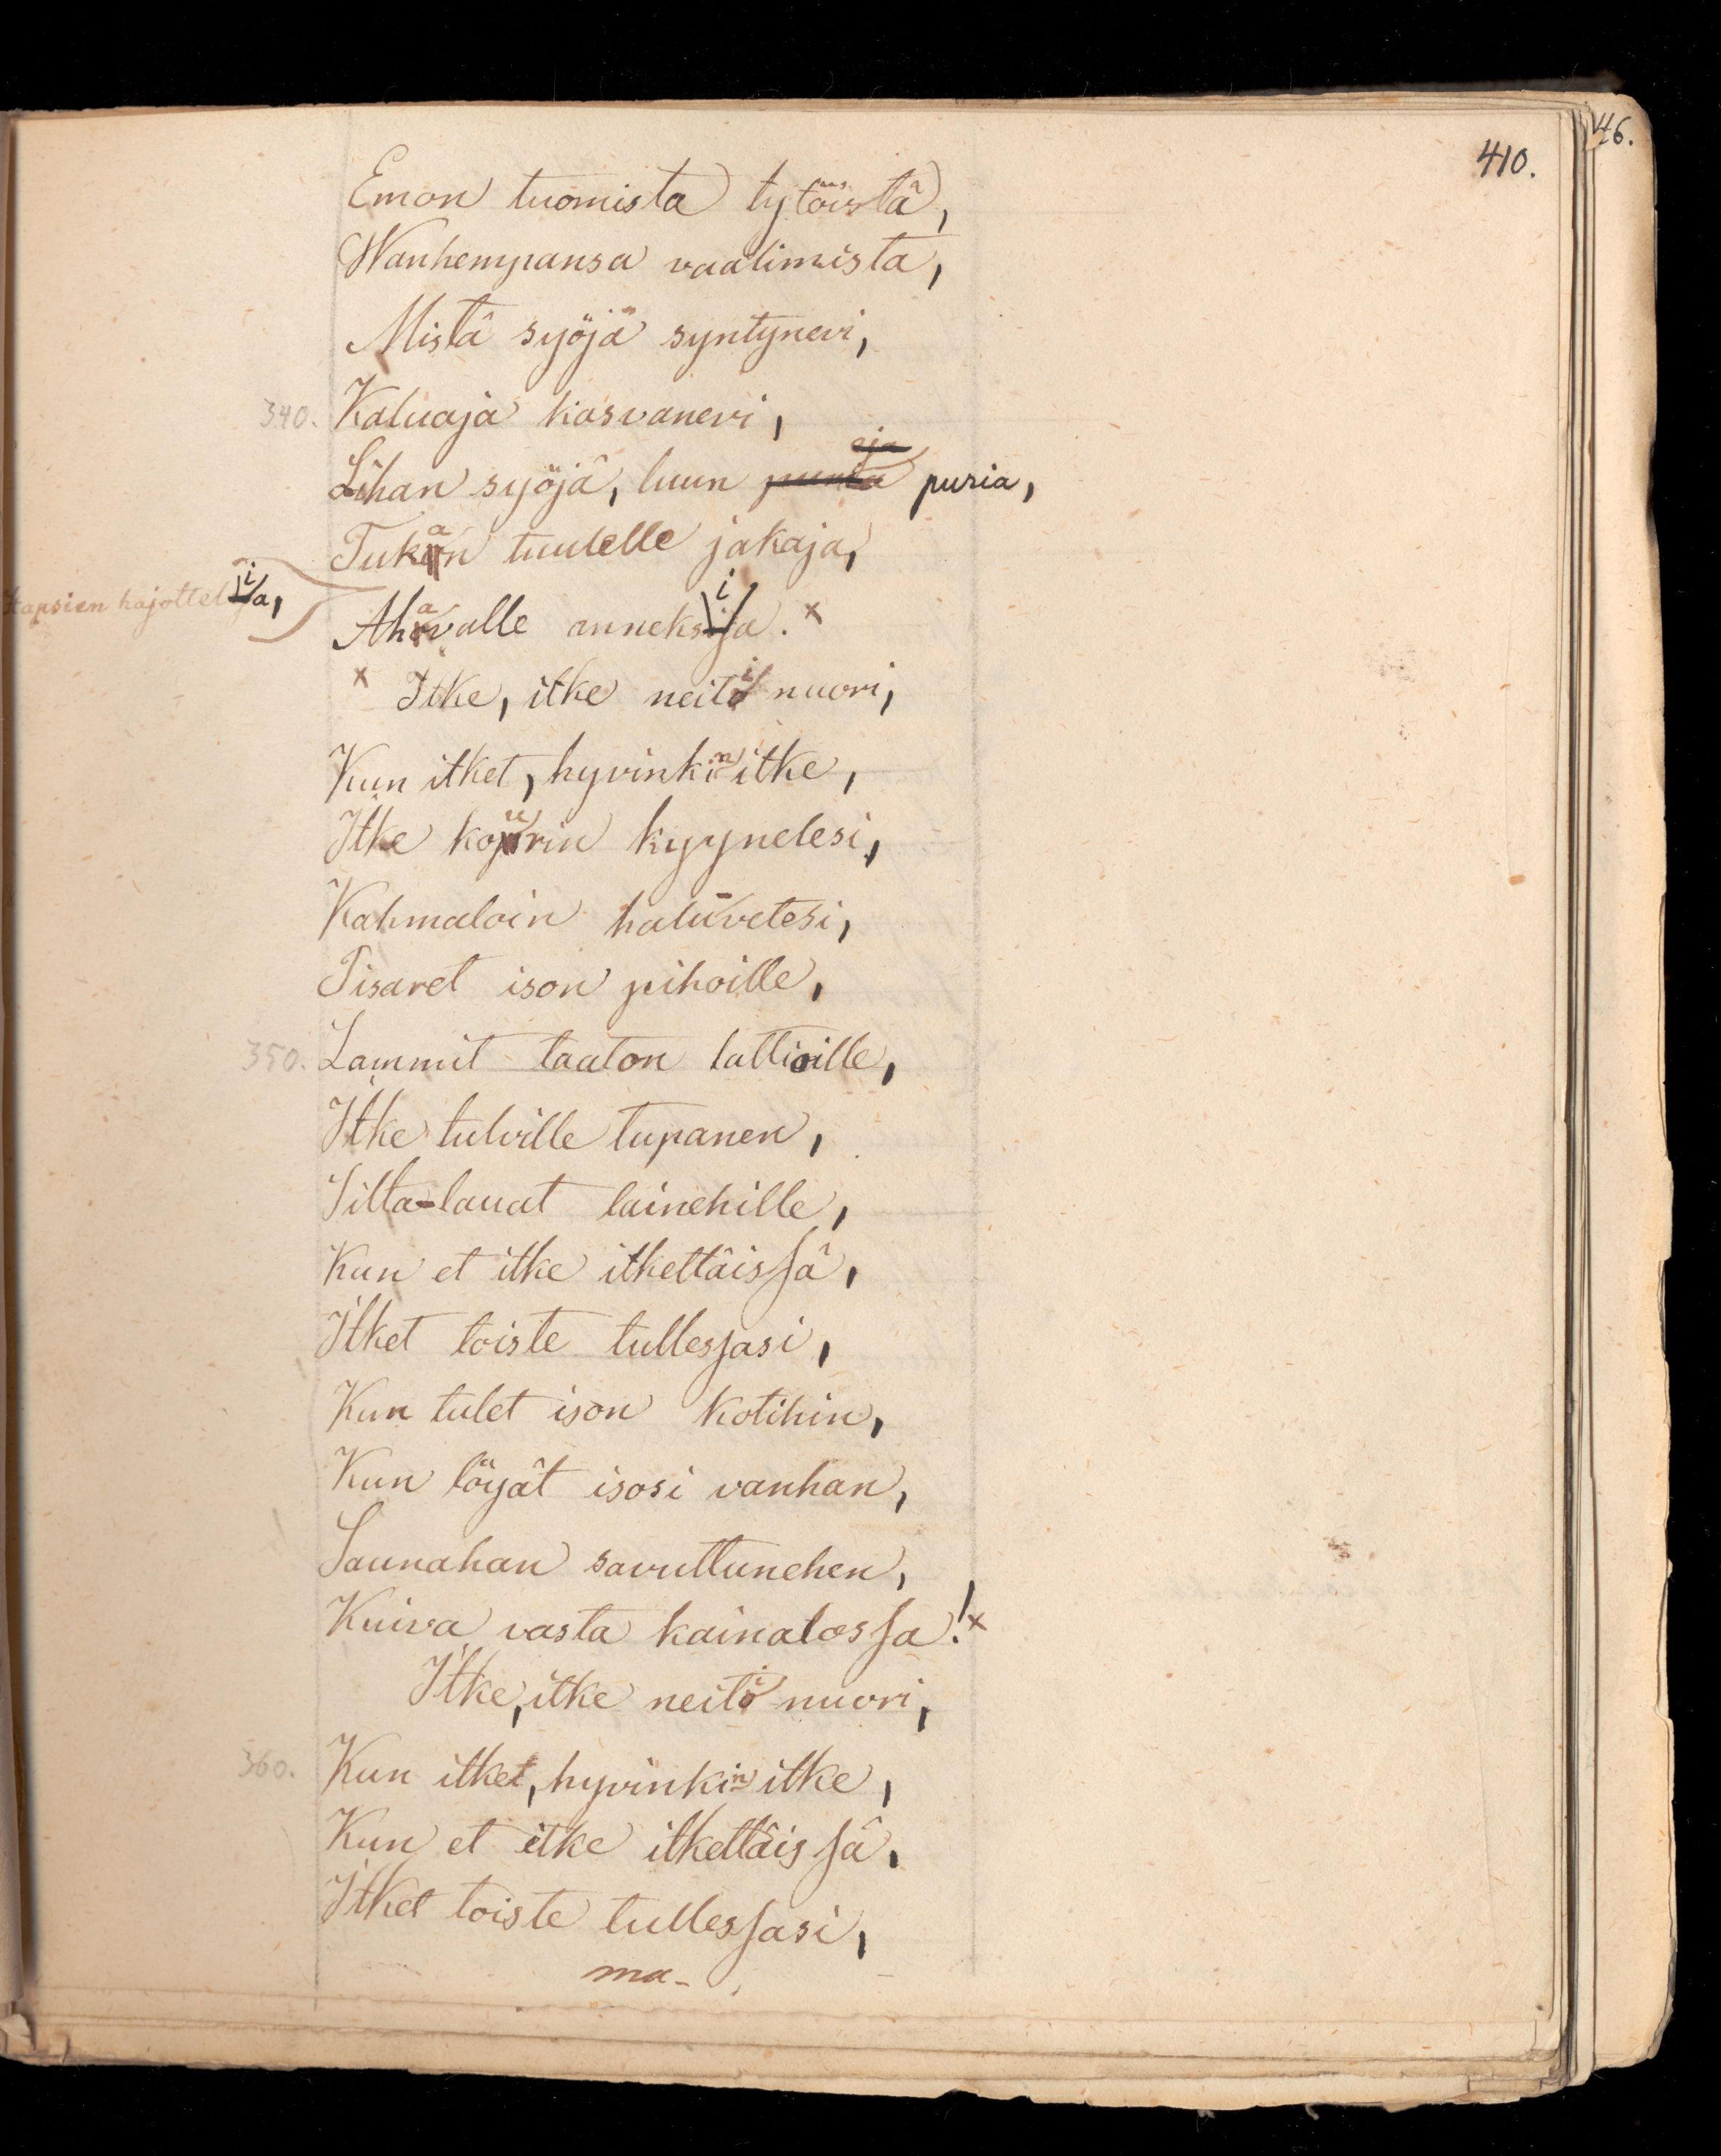 410.
46.
Emon tuomista tytöistä,
Wanhempansa vaalimista,
Mistä syöjä syntynevi,
340. Kaluaja kasvanevi,
Lihan syöjä, luun puria,
Tukan tuulelle jakaja,
Hapsien hajottelia,
Ahavalle anneksia. x
x Itke, itke neiti nuori,
Kun itket, hyvinkin itke,
Itke kourin kyynelesi,
Kahmaloin haluvetesi,
Pisaret ison pihoille,
350. Lammit taaton lattioille,
Itke tulville tupanen,
Silta-lauat lainehille,
Kun et itke itkettäissä,
Itket toiste tullessasi,
Kun tulet ison kotihin,
Kun löyät isosi vanhan,
Saunahan savuttunehen,
Kuiva vasta kainalossa! x
Itke, itke neiti nuori,
360. Kun itket, hyvinkin itke,
Kun et itke itkettäissä,
Itket toiste tullessasi,
ma-